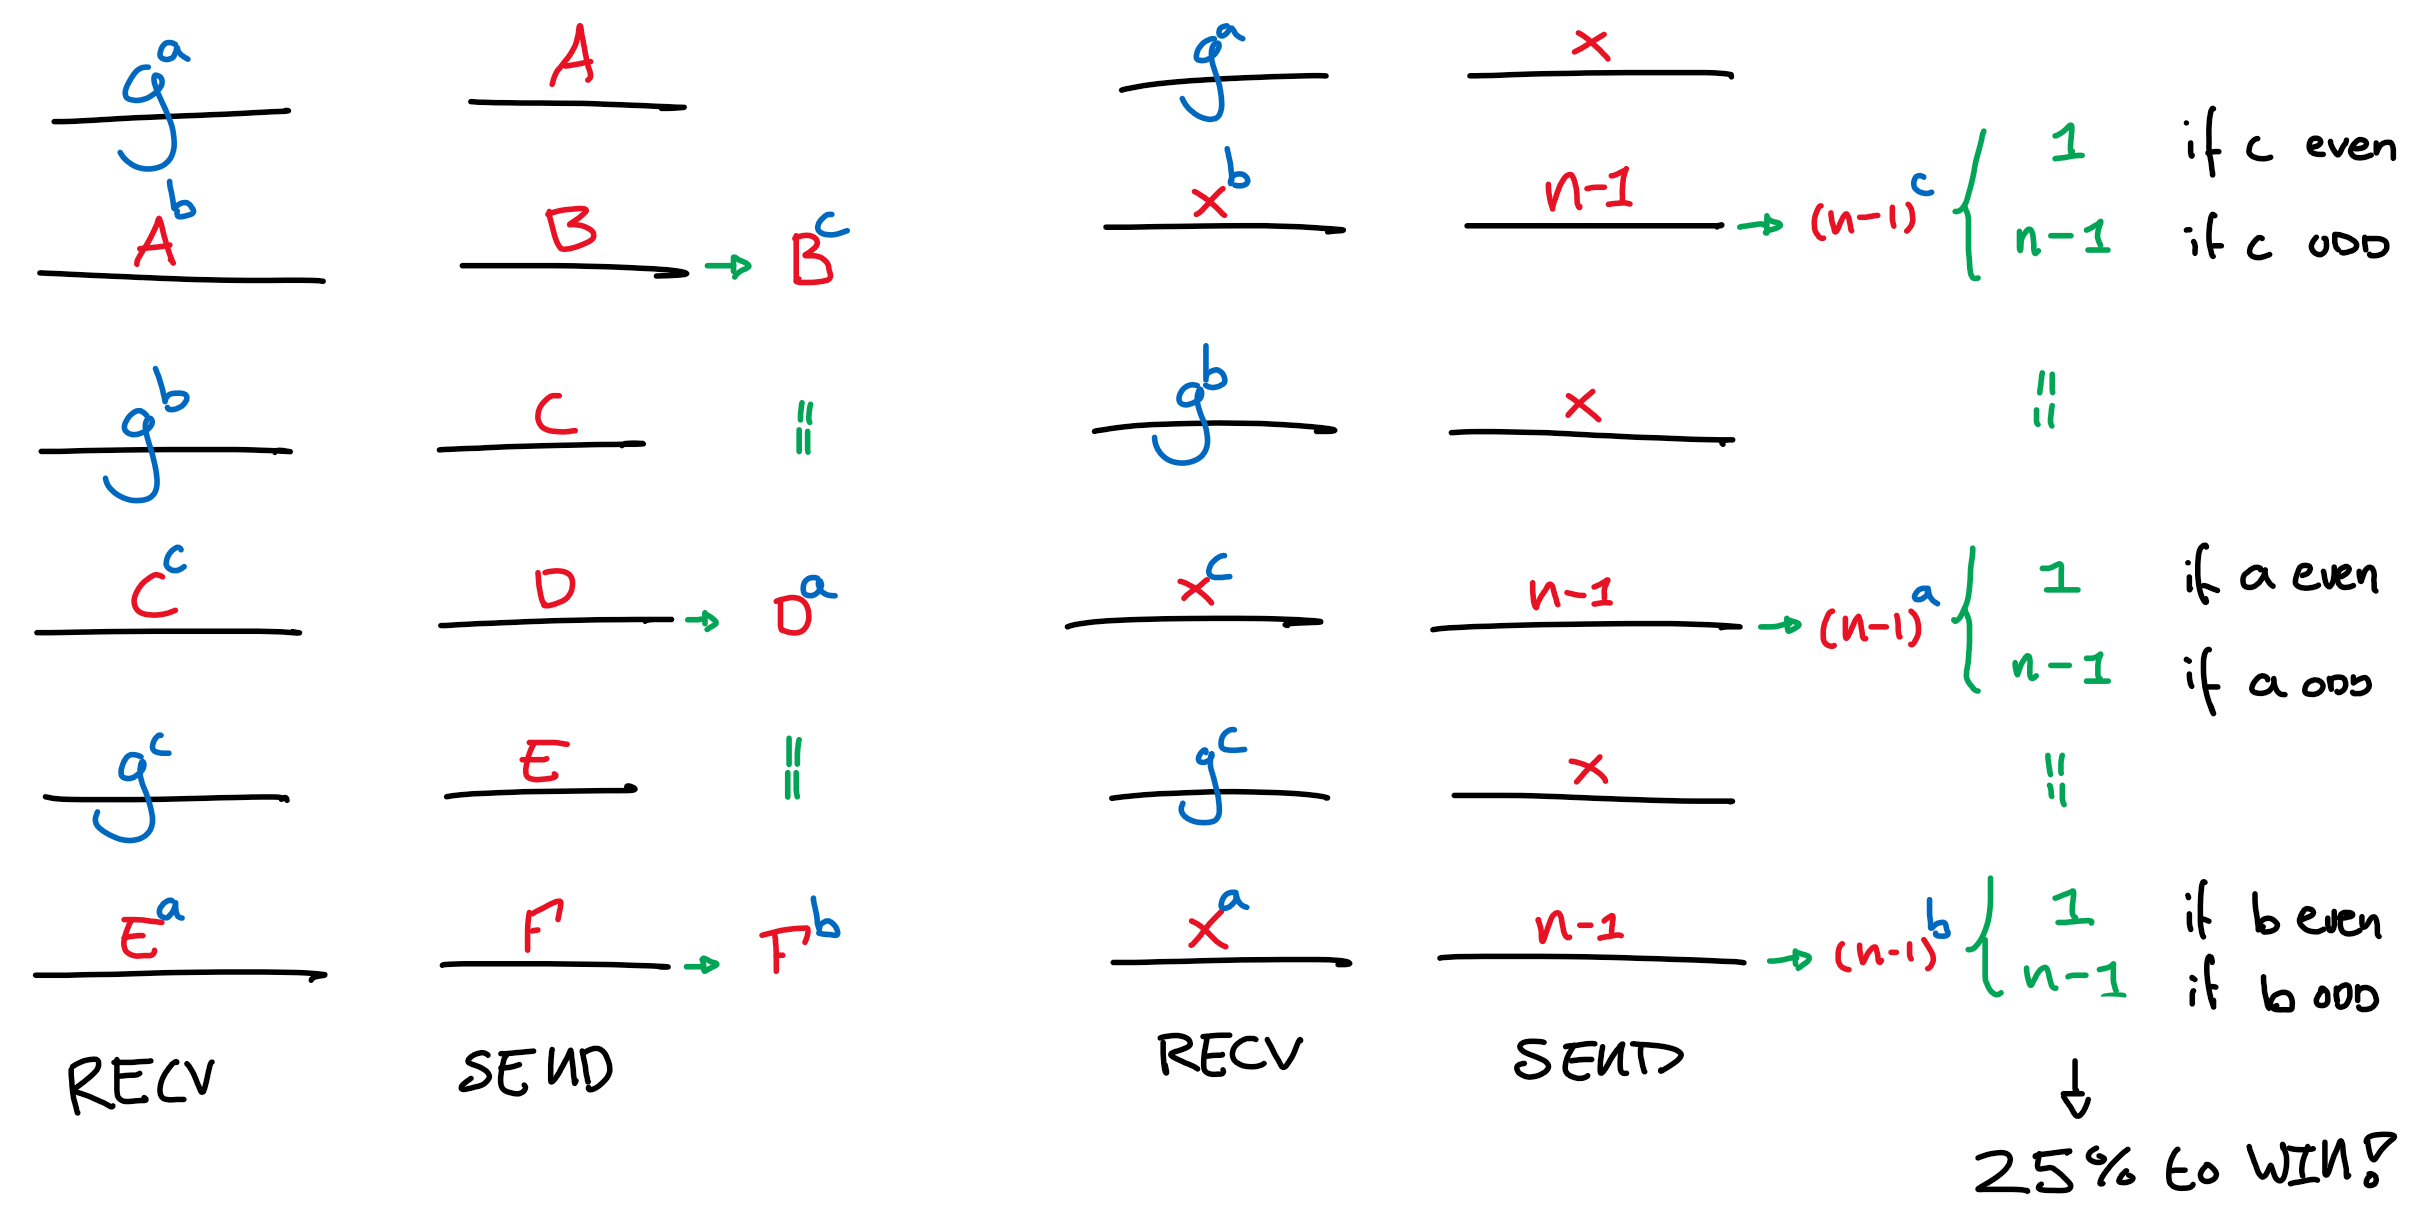 g^a A
A^b B → B^c
g^b C =
C^c D → D^a
g^c E =
E^a F → F^b
RECV SEND
g^a x
x^b n-1 → (n-1)^c { 1 if c even
n-1 if c ODD
g^b x =
x^c n-1 → (n-1)^a { 1 if a even
n-1 if a ODD
g^c x =
x^a n-1 → (n-1)^b { 1 if b even
n-1 if b ODD
RECV SEND
↓
25% to WIN!